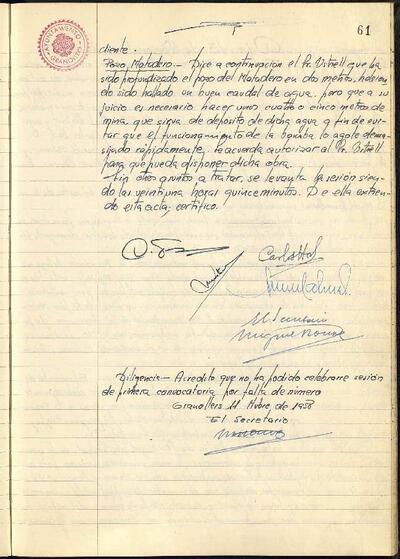 61
AYUNTAMIENTO
GRANOLLERS
diente.
Pozo Matadero.- Dice a continuación el Sr. Vitrell que ha
sido profundizado el pozo del Matadero en dos metros, habien
do sido hallado un buen caudal de agua, pero que a su
juicio es necesario hacer unos cuatro o cinco metros de
mina que sirva de deposito de dicha agua a fin de evi
tar que el funcionamiento de la bomba lo agote dema
siado rápidamente. Se acuerda autorizar al Sr. Vitrell
para que pueda disponer dicha obra.
Sin otros asuntos a tratar, se levanta la sesión sien
do las veintiuna horas quince minutos. De ella extien
do esta acta, certifico.
Carlos
Miguel
Diligencia - Acredito que no ha podido celebrarse sesión
de primera convocatoria por falta de número
Granollers 11 Nvbre. de 1958
El Secretario